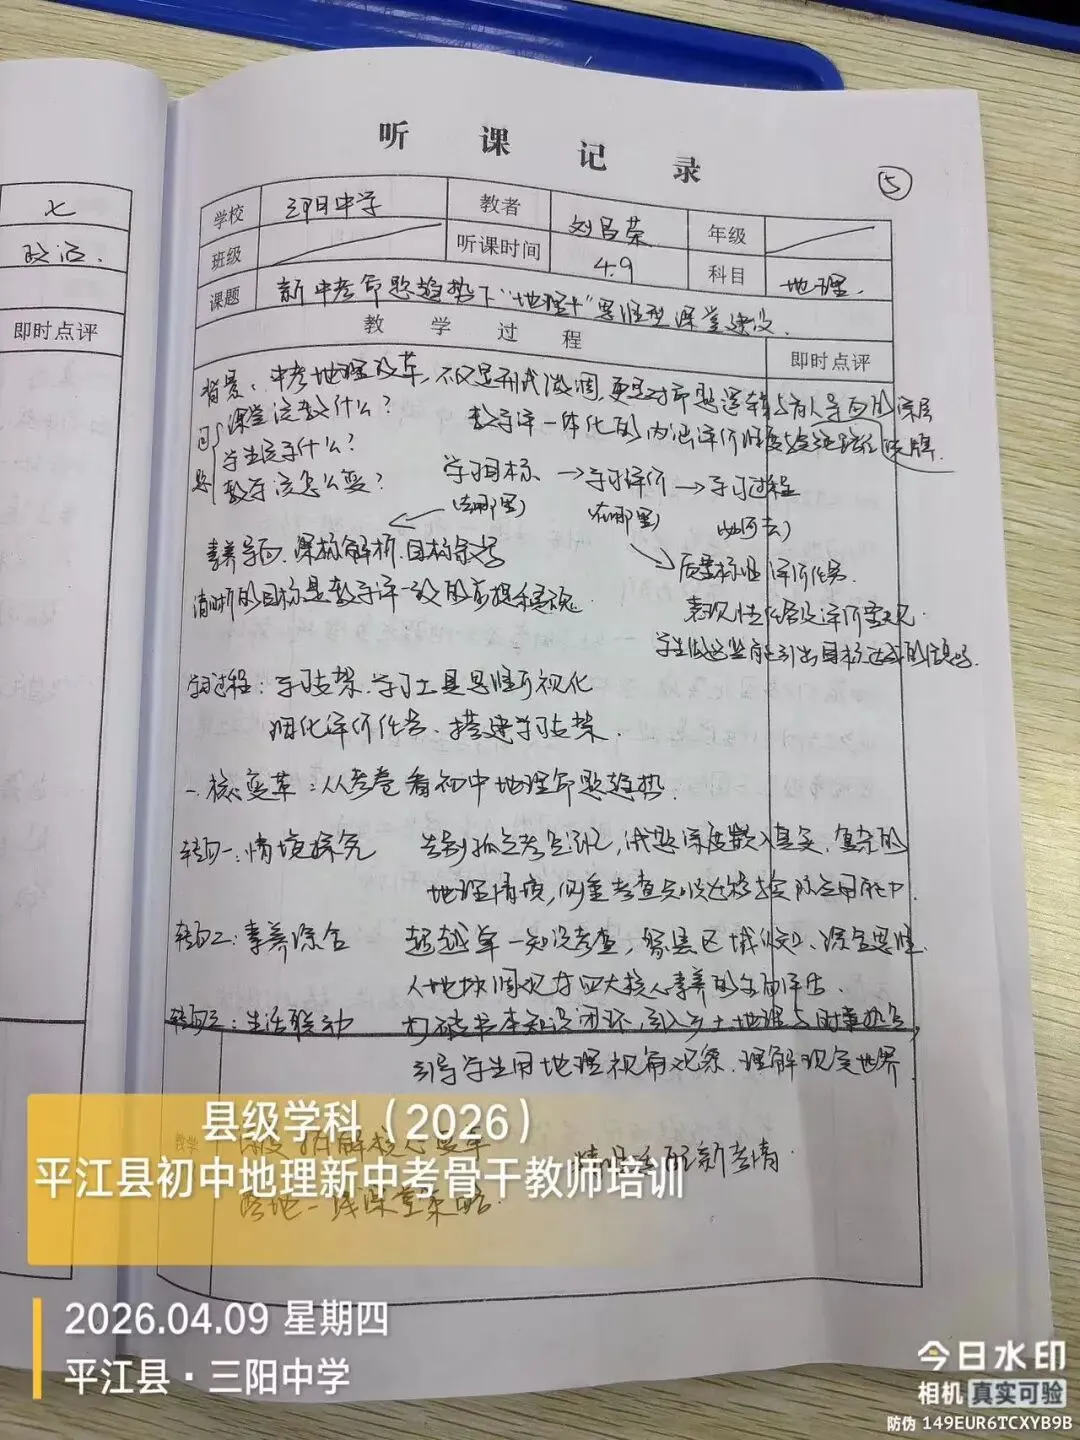 听课记录
⑤
学校 三阳中学 教者 刘吕荣 年级
班级 听课时间 4.9 科目 地理.
课题 新中考命题趋势下“地理+”思维型课堂建议.
教学过程 即时点评
背景:中考地理改革,不仅是形式微调,更是对命题逻辑与育人导向的深层
教学评一体化的内涵评价
问题
课堂该教什么?
学生该学什么?
教学该怎么变?
学习目标 → 学习评价 → 学习过程
(去哪里) (在哪里) (如何去)
素养导向.课标解析.目标叙写
质量标准 评价任务
清晰的目标是教学评一致的前提和灵魂.
表现性任务及评价量规.
学生做这些能引出目标达成的信息吗.
学习过程:学习支架.学习工具思维可视化
细化评价任务.搭建学习支架.
一.核心变革:从考卷看初中地理命题趋势.
转向一:情境探究 告别孤立考点识记,试题深度嵌入真实、复杂的
地理情境,侧重考查知识迁移与实际应用能力.
转向二:素养综合 超越单一知识考查,聚焦区域认知、综合思维.
人地协调观等四大核心素养的全面评估.
转向三:生活联动 打破书本知识闭环,引入乡土地理与时事热点,
引导学生用地理视角观察.理解现实世界.
教学
拆解核心变革 精准匹配新考情.
落地一线课堂策略.
七
政治.
即时点评
县级学科(2026)
平江县初中地理新中考骨干教师培训
2026.04.09 星期四
平江县·三阳中学
今日水印
相机 真实可验
防伪 149EUR6TCXYB9B